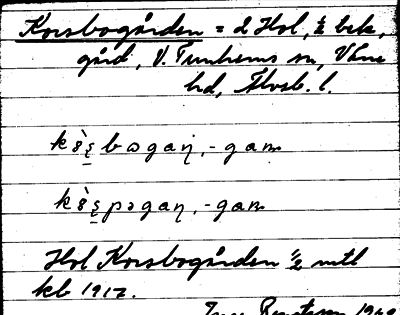 Korsbogården = 2 Hol, ½ bek,
gård, V. Tunhems sn, Väne
hd, Älvsb. l.
kò̤ʂbogaɳ, -gam
kò̤ʂpəgaɳ, -gam
Hol Korsbogården ½ mtl
kb 1917.